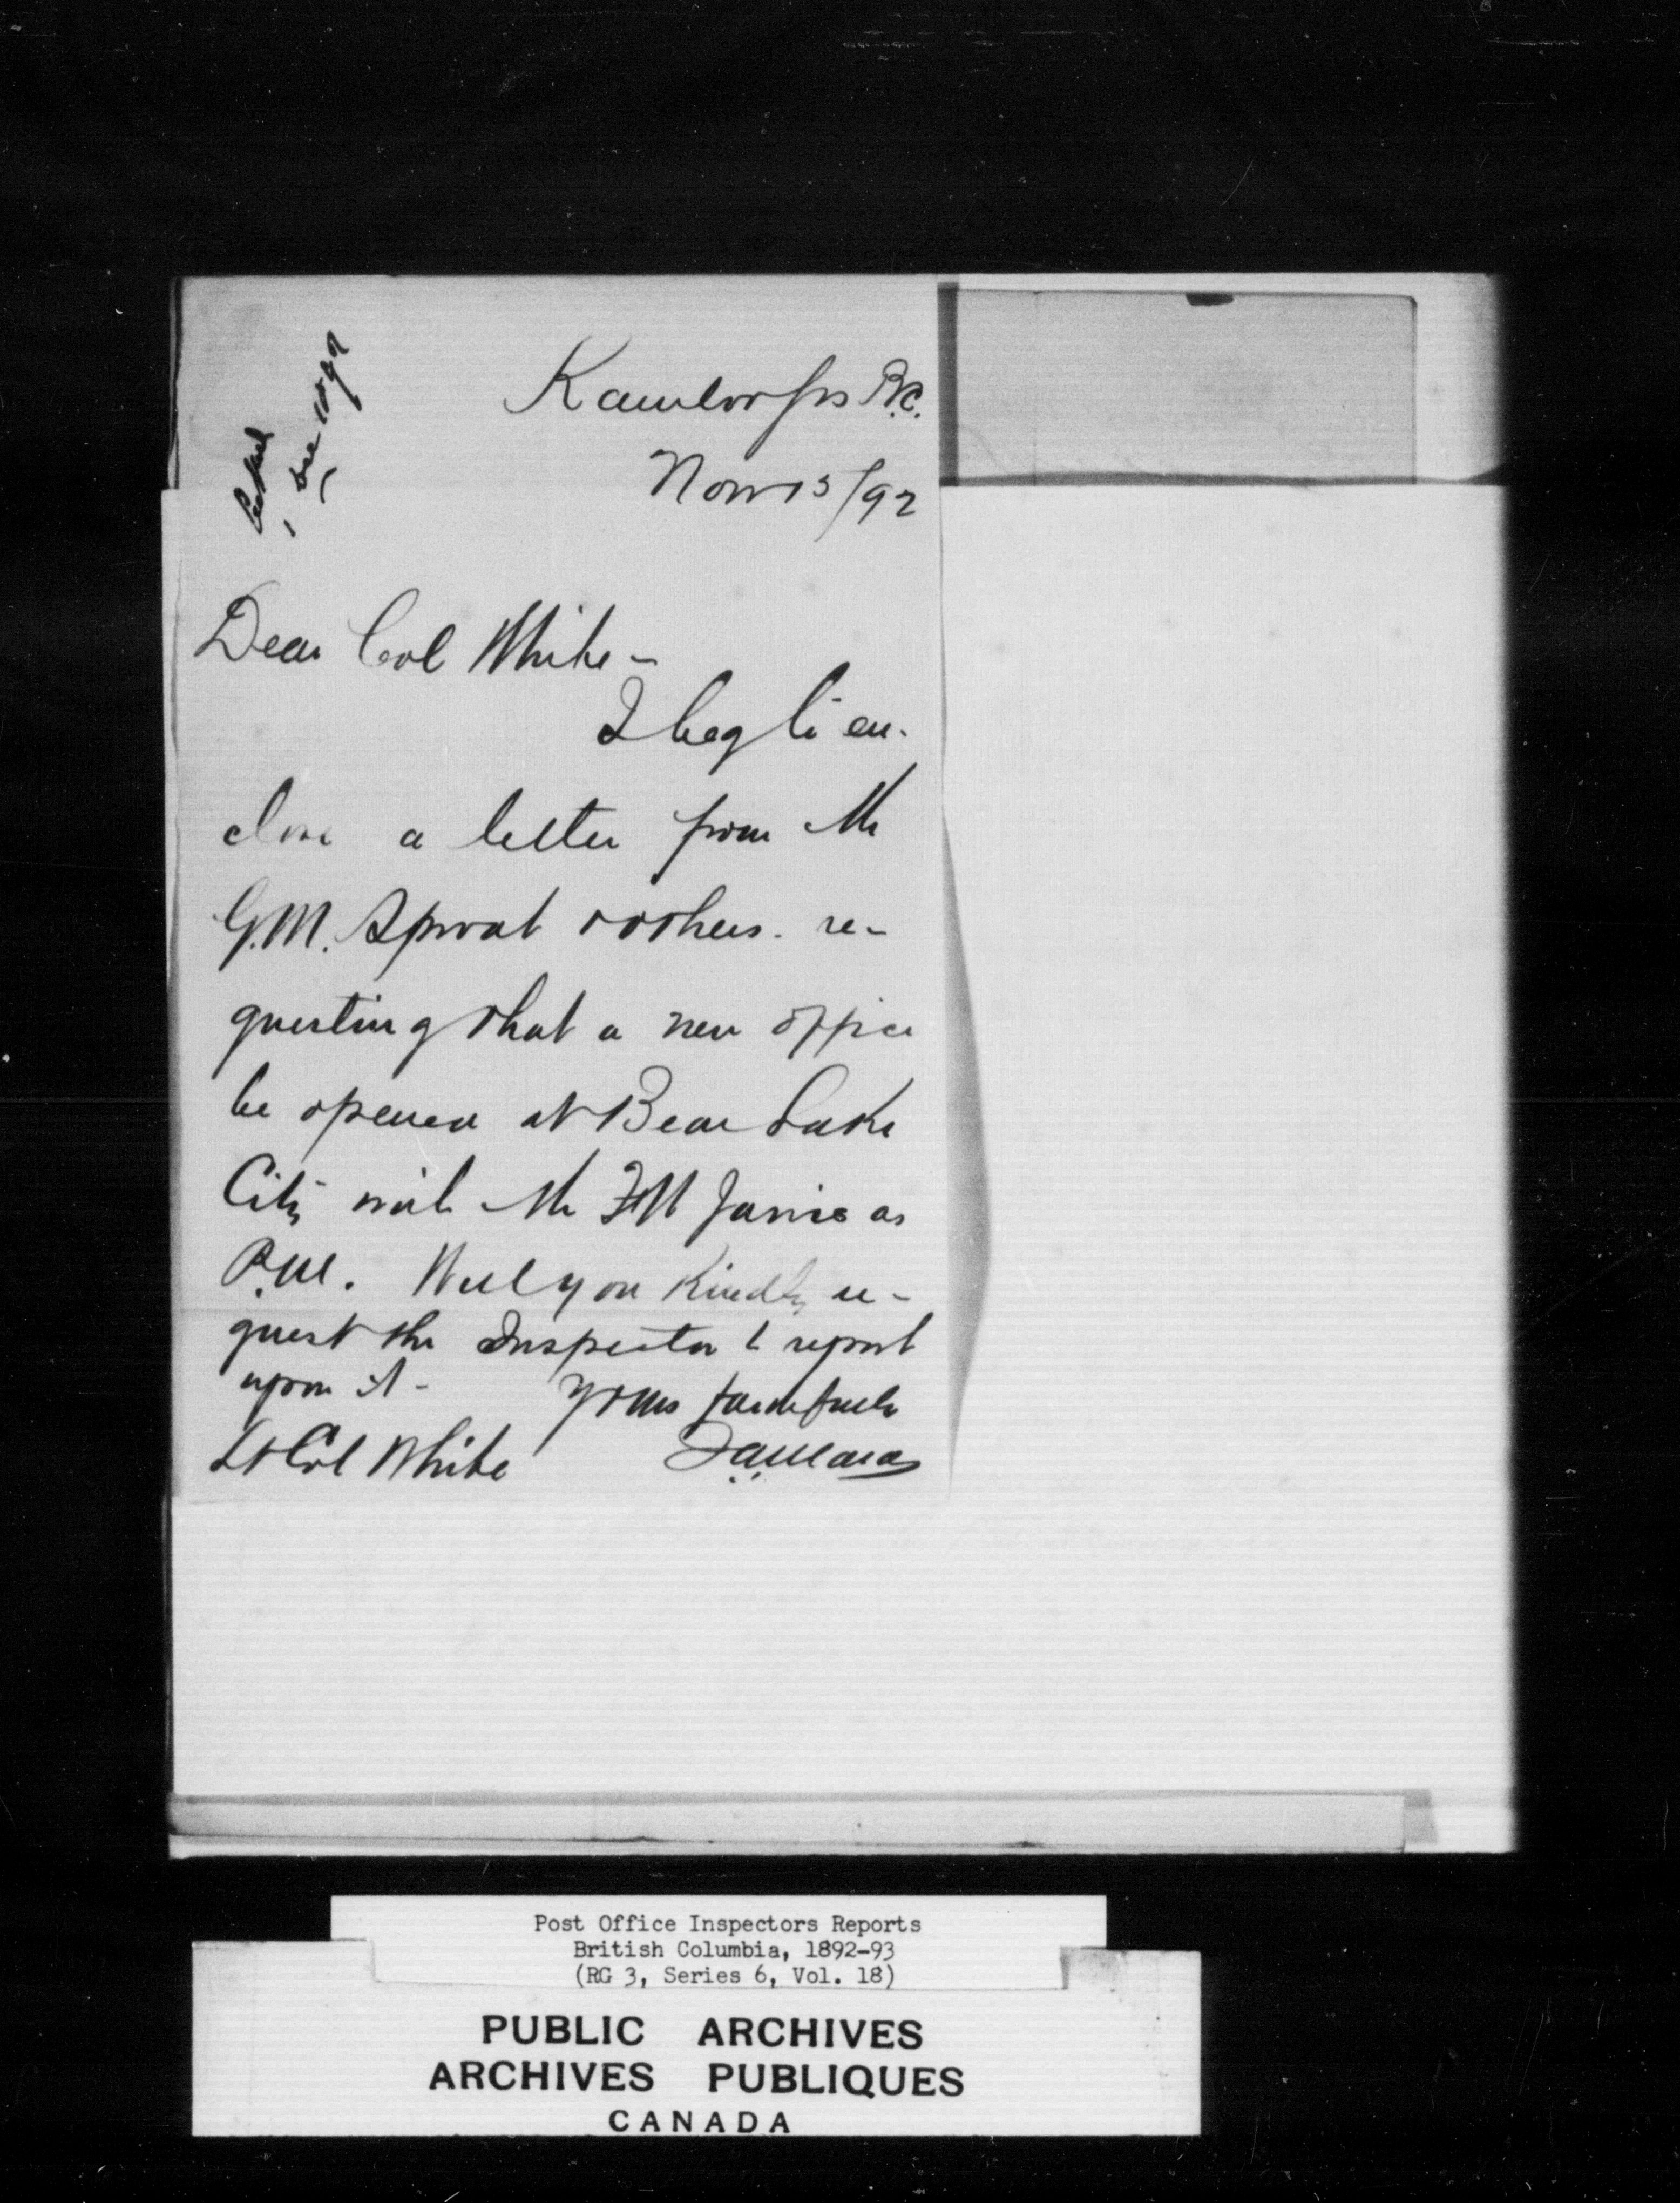 Kamloops B.C.
Nov 15/92
Dec 10 92
Dear Col White -
I beg to en-
close a letter from Mr
G.M. Sproat & others. re-
questing that a new office
be opened at Bear Lake
City with Mr Jarvis as
P.M. Will you Kindly re-
quest the Inspector to report
upon it -
Yours faithfully
J.A. Mara
Lt Col White
Post Office Inspectors Reports
British Columbia, 1892-93
(RG 3, Series 6, Vol. 18)
PUBLIC ARCHIVES
ARCHIVES PUBLIQUES
CANADA